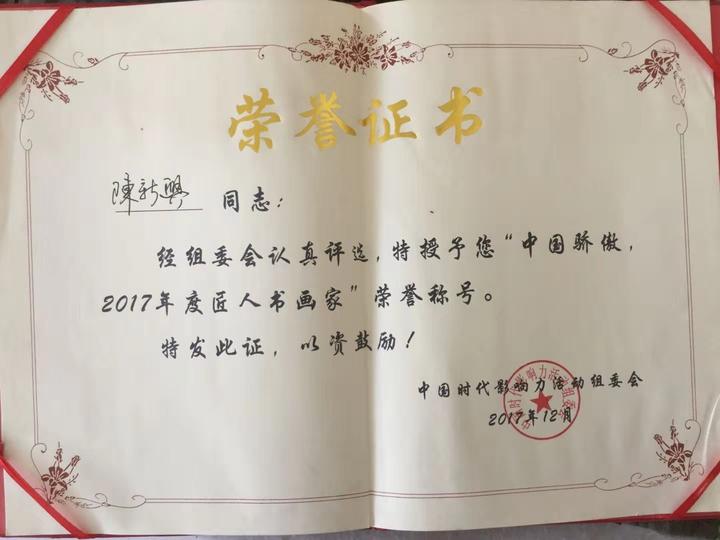 荣誉证书
陳新興 同志：
经组委会认真评选，特授予您“中国骄傲，
2017年度匠人书画家”荣誉称号。
特发此证，以资鼓励！
中国时代影响力活动组委会
2017年12月